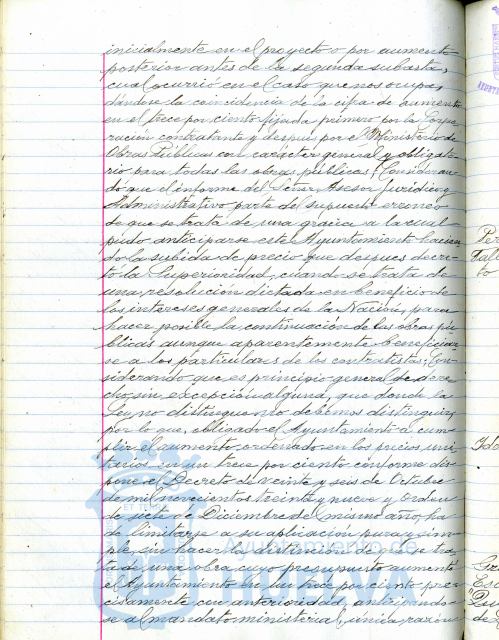 inicialmente en el proyecto o por aumento
posterior antes de la segunda subasta,
cual ocurrió en el caso que nos ocupa,
dándose la coincidencia de la cifra de aumento
en el trece por ciento fijada primero por la Corpo-
ración contratante y despues por el Ministerio de
Obras Públicas con carácter general y obligato-
rio para todas las obras públicas; Consideran-
do que el informe del Señor Asesor Jurídico
Administrativo parte del supuesto erroneo
de que se trata de una gracia a la cual
pudo anticiparse este Ayuntamiento hacien-
do la subida de precio que despues decre-
tó la Superioridad, cuando se trata de
una resolución dictada en beneficio de
los intereses generales de la Nación, para
hacer posible la continuación de las obras pú-
blicas aunque aparentemente beneficiar
se a los particulares de los contratistas; Con-
siderando que es principio general de dere-
cho sin excepción alguna, que donde la
Ley no distingue no debemos distinguir,
por lo que, obligado el Ayuntamiento a cum-
plir el aumento ordenado en los precios uni-
tarios en un trece por ciento conforme dis-
pone el Decreto de veinte y seis de Octubre
de mil novecientos treinta y nueve y Orden
de siete de Diciembre del mismo año, ha
de limitarse a su aplicación pura y sim-
ple, sin hacer la distinción de que se tra-
ta de una obra cuyo presupuesto aumentó
el Ayuntamiento en un trece por ciento pre-
cisamente con anterioridad, anticipando-
se al mandato ministerial, única razón
Ayuntamiento de
HUELVA